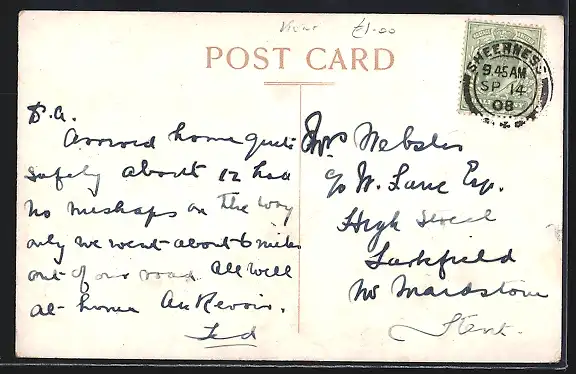 £1-00
POST CARD
SHEERNESS
9.45 AM
SP 14
08
D. A.
Arrived home quite
safely about 12 had
no mishaps on the way
only we went about 6 miles
out of our road All well
at home Au Revoir.
Ted
Mrs Webster
c/o W. Lane Esq.
High Street
Larkfield
Nr Maidstone
Kent.